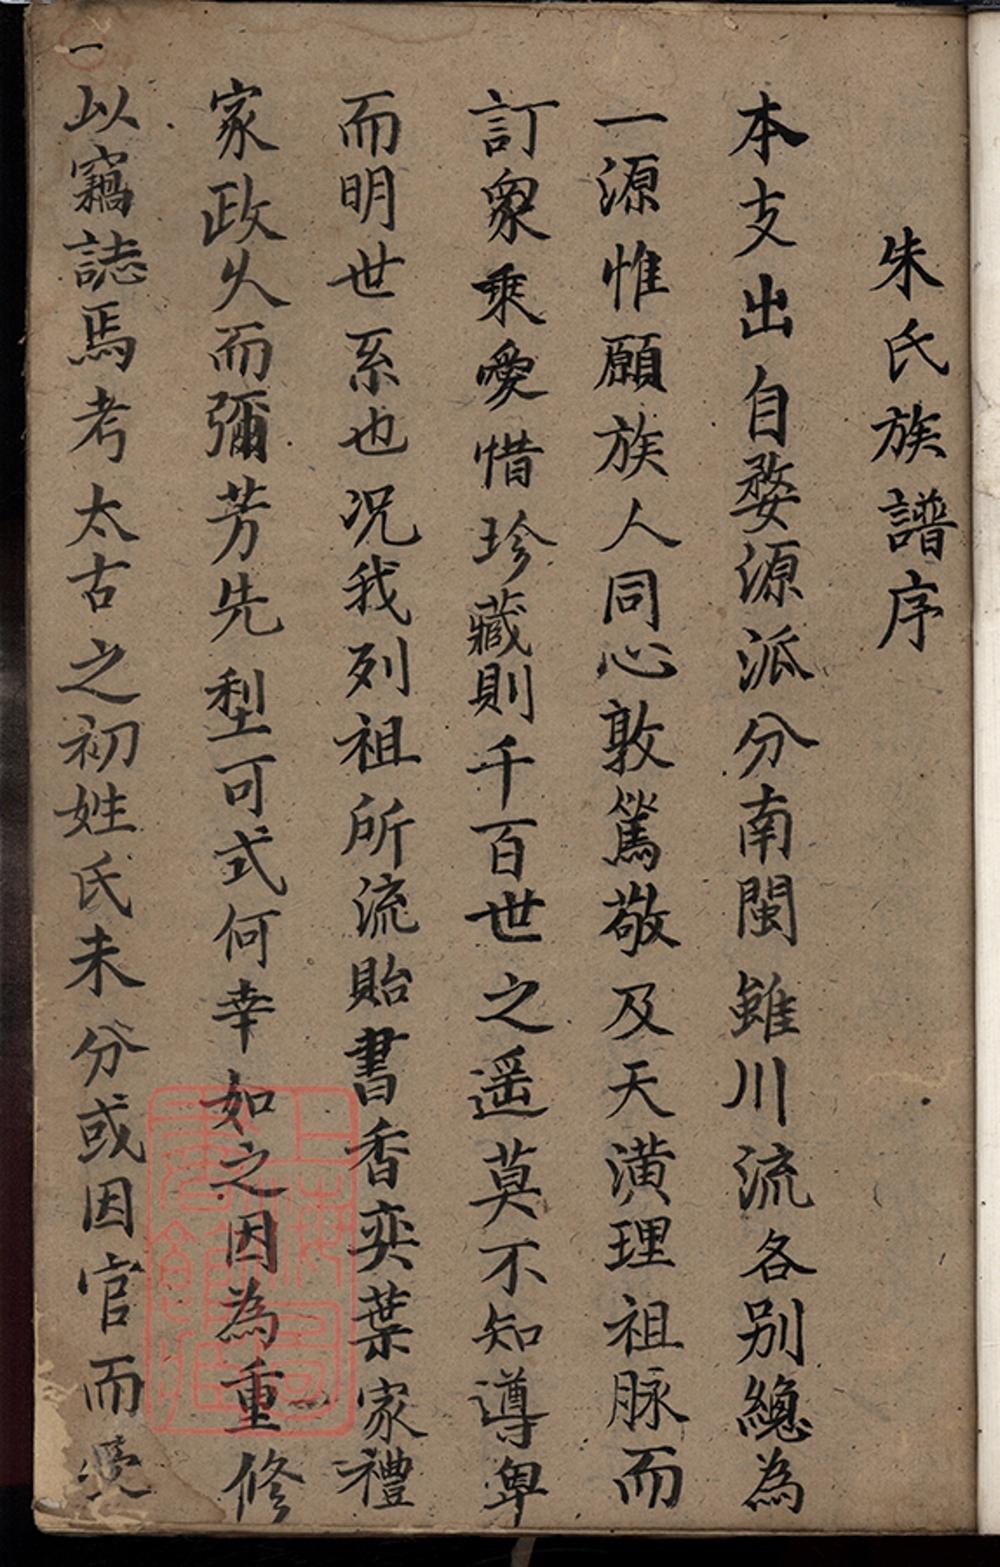 朱氏族譜序
本支出自婺源派分南閩雖川流各別總為
一源惟願族人同心敦篤敬及天潢理祖脉而
訂衆乘愛惜珍藏則千百世之遥莫不知遵卑
而明世系也况我列祖所流貽書香奕葉家禮
家政久而彌芳先型可式何幸如之因為重修
以竊誌焉考太古之初姓氏未分或因官而受
一
上海圖書館藏